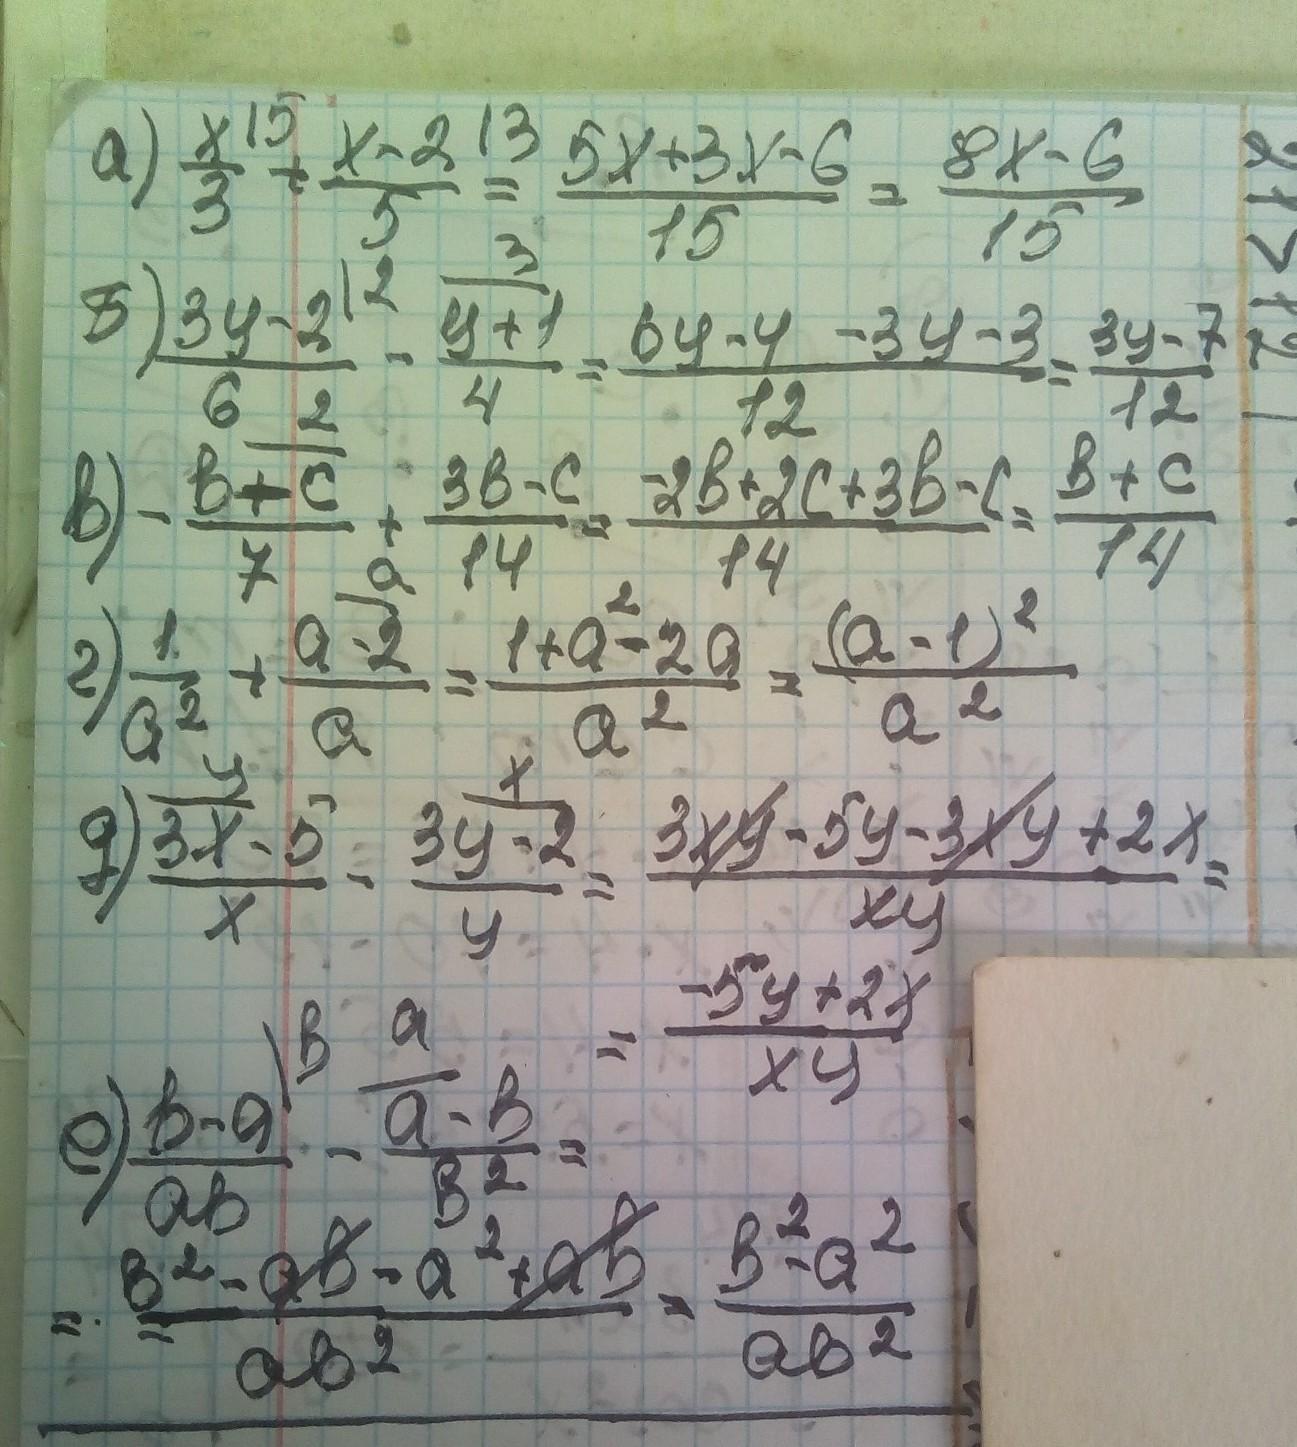 а) x/3 |5 + (x-2)/5 |3 = (5x+3x-6)/15 = (8x-6)/15
Б) (3y-2)/6 |2 - (y+1)/4 |3 = (6y-4 -3y-3)/12 = (3y-7)/12
в) - (b+c)/7 |2 + (3b-c)/14 = (-2b+2c+3b-c)/14 = (b+c)/14
г) 1/a² + (a-2)/a |a = (1+a²-2a)/a² = (a-1)²/a²
д) (3x-5)/x |y - (3y-2)/y |x = (3xy-5y-3xy+2x)/xy =
= (-5y+2x)/xy
е) (b-a)/ab |b - (a-b)/b² |a =
= (b²-ab-a²+ab)/ab² = (b²-a²)/ab²